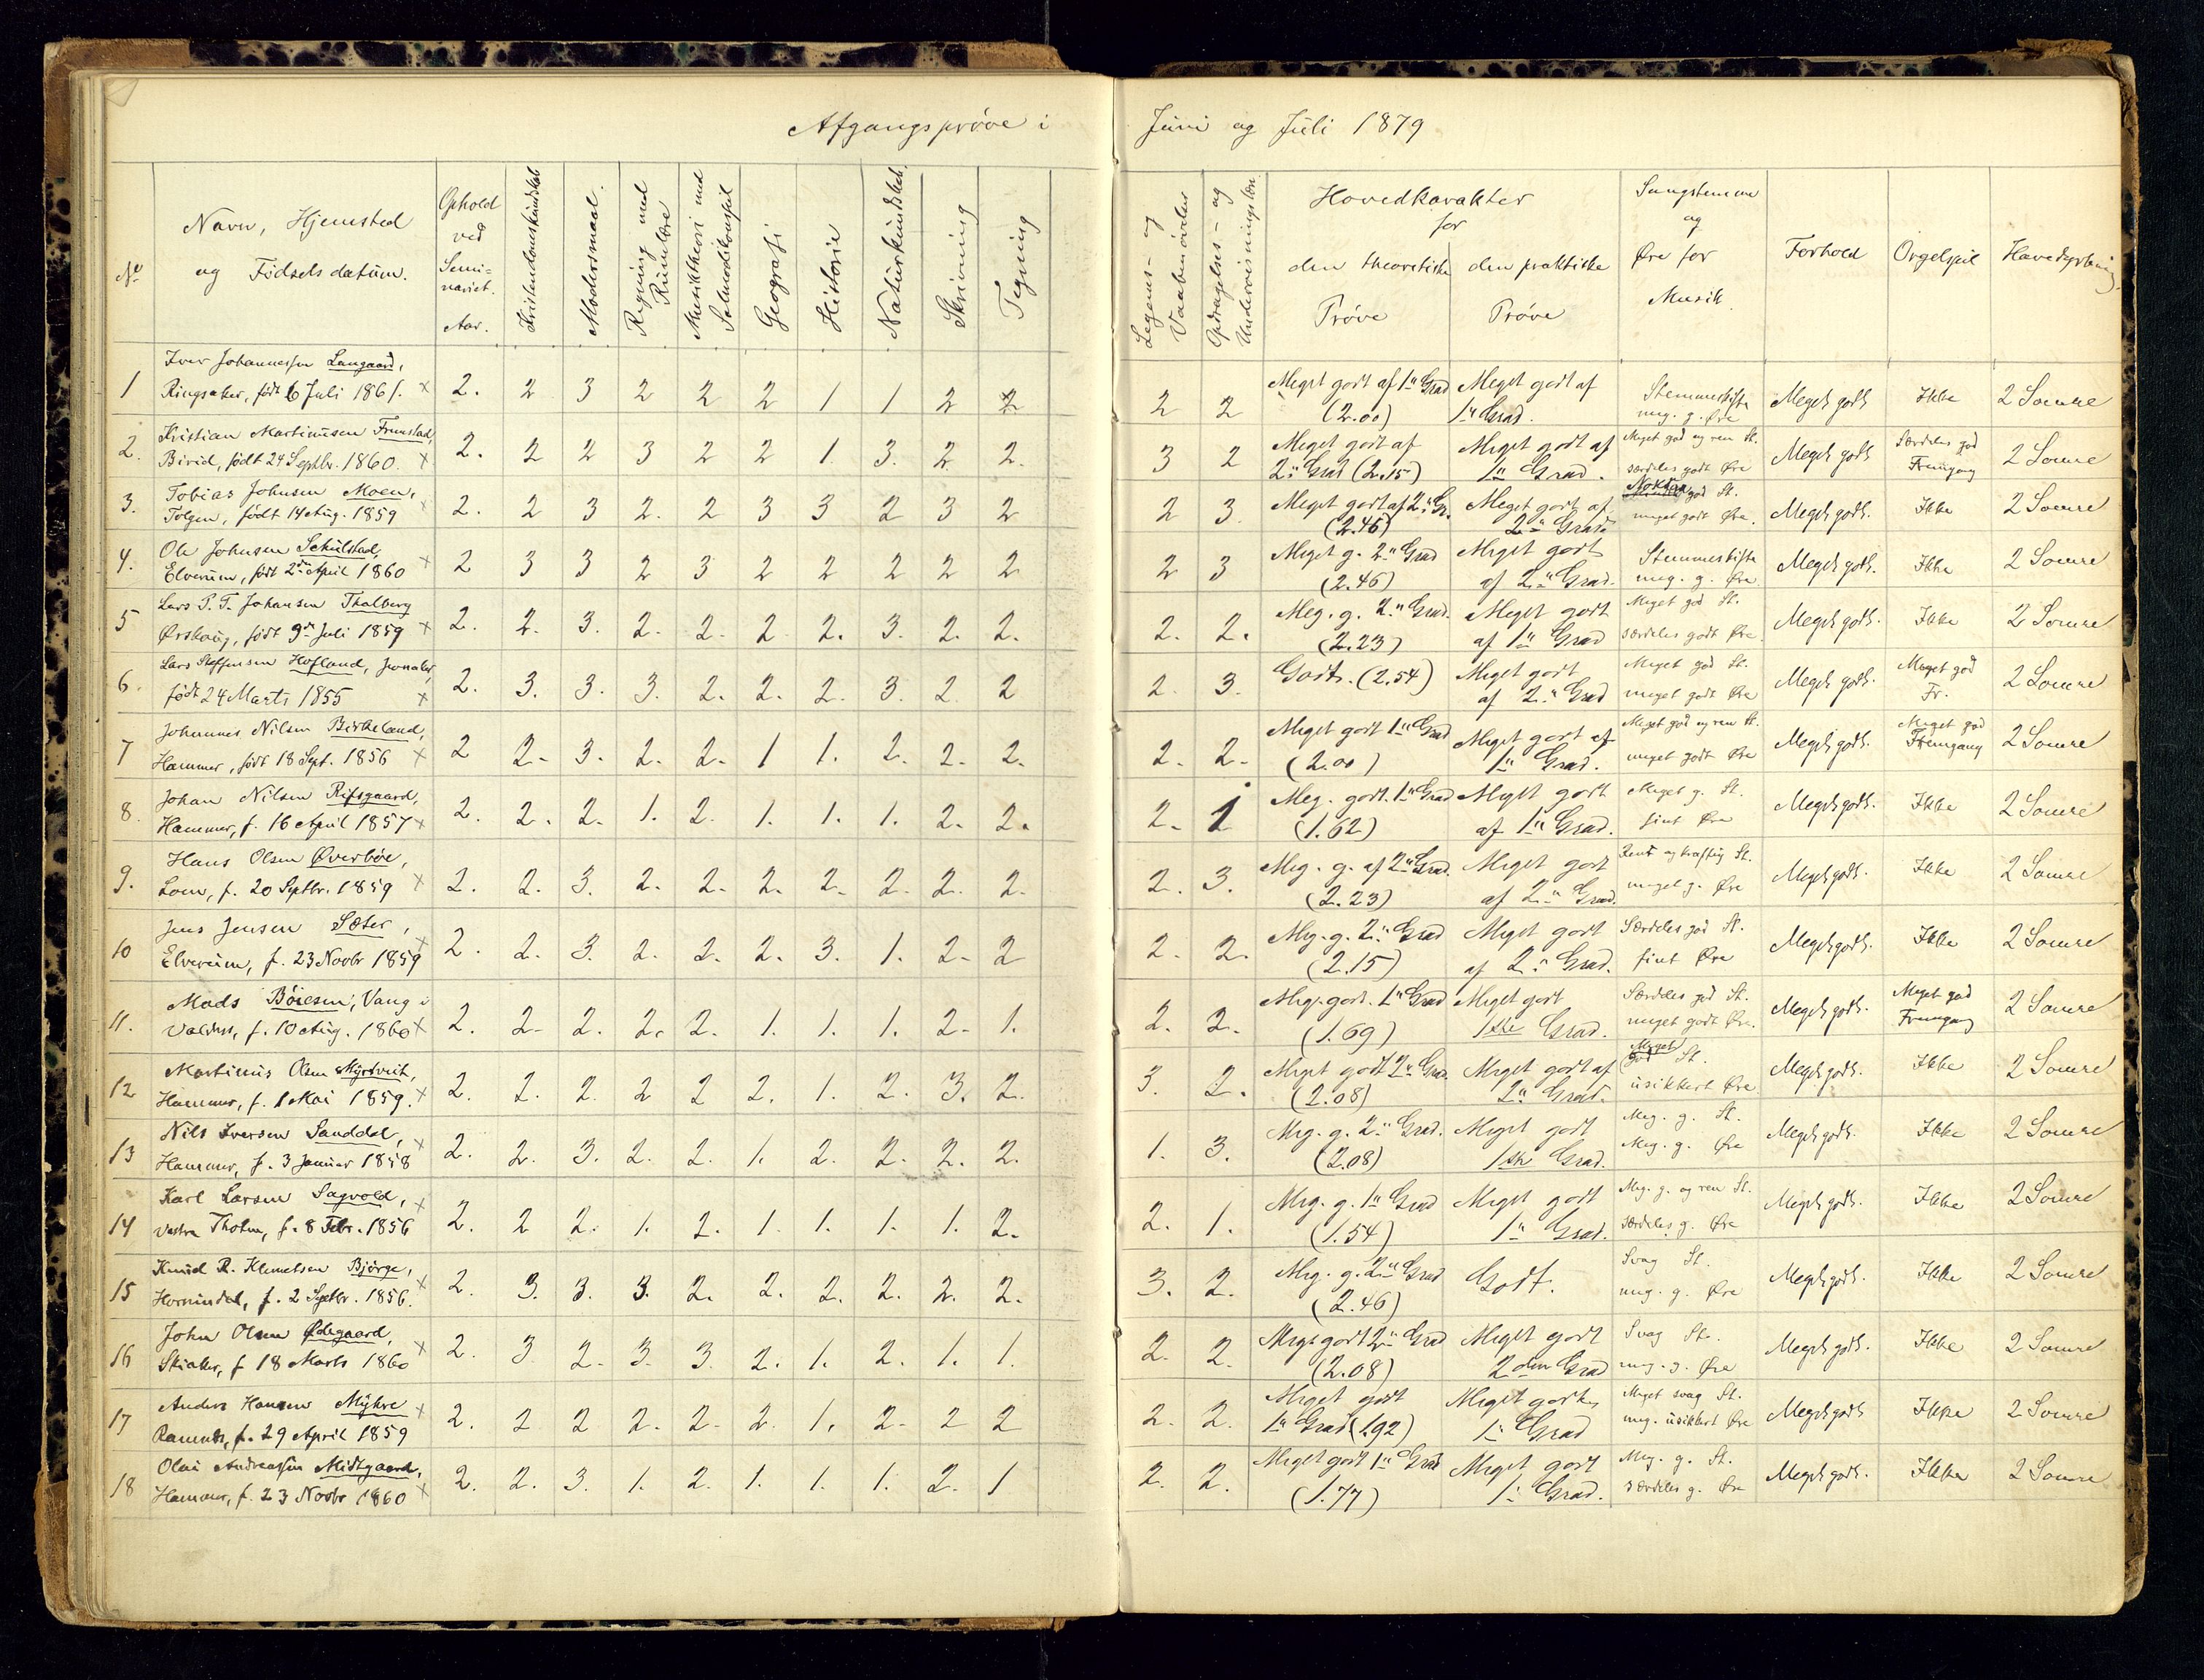 Afgangsprøve i Juni og Juli 1879
No
Navn, Hjemsted
og Fødselsdatum.
Ophold
ved
Semi=
nariet.
Aar.
Kristendomskundskab
Modersmaal.
Regning med
Rumlære
Musiktheori med
Salmodikonspil
Geografi
Historie
Naturkundskab.
Skrivning
Tegning
Legems- og
Vaabenøvelser
Opdragelses- og
Undervisningslære
Hovedkarakter
for
den theoretiske
Prøve
den praktiske
Prøve
Sangstemme
og
Øre for
Musik
Forhold
Orgelspil
Havedyrkning
1 Iver Johannessen Langaard,
Ringsaker, født 6 Juli 1861. x 2. 2 3 2 2 2 1 1 2 2 2 2 Meget godt af 1ste Grad (2.00) Meget godt af 1ste Grad. Stemmeskifte meg. g. Øre Meget godt Ikke 2 Somre
2. Kristian Martinusen Fremstad,
Birid, født 24 Septbr. 1860. x 2. 2 2 3 2 2 1 3. 2. 2. 3 2 Meget godt af 2den Grad (2.15) Meget godt af 1ste Grad. Meget god og ren St. særdeles godt Øre Meget godt Særdeles god Fremgang 2 Somre
3. Tobias Johnsen Moen,
Tolgen, født 14 Aug. 1859 x 2. 2 3 2. 2 3 3 2 3 2 2 3. Meget godt af 2den Gr. (2.46) Meget godt af 2den Grad. Nokså god St. meget godt Øre. Meget godt. Ikke 2 Somre
4. Ole Johnsen Schulstad,
Elverum, født 2den April 1860 x 2 3 3 2 3 2 2 2 2 2 2 3 Meget g. 2den Grad (2.46) Meget godt af 2den Grad. Stemmeskifte meg. g. Øre Meget godt. Ikke 2 Somre
5 Lars P. T. Johansen Thalberg
Ørskoug, født 9de Juli 1859 x 2. 2. 3. 2. 2. 2 2. 3. 2. 2. 2. 2. Meg. g. 2den Grad. (2.23) Meget godt af 1ste Grad Meget god St. særdeles godt Øre. Meget godt. Ikke 2 Somre
6. Lars Steffensen Hofland, Jevnaker,
født 24 Marts 1855 x 2. 3. 3. 3. 2. 2. 2. 3. 2 2 2. 3. Godt. (2.54) Meget godt af 2den Grad Meget god St. meget godt Øre Meget godt. Meget god Fr. 2 Somre
7 Johannes Nilsen Birkeland,
Hammer, født 18 Sept. 1856 x 2 2. 3. 2. 2. 1 1. 2. 2. 2. 2. 2. Meget godt 1ste Grad (2.00) Meget godt af 1ste Grad. Meget god og ren St. meget godt Øre Meget godt. Meget god Fremgang 2 Somre
8. Johan Nilsen Rifsgaard,
Hammer, f. 16 April 1857 x 2. 2. 2. 1. 2. 1. 1. 1. 2. 2. 2. 1 Meg. godt. 1ste Grad (1.62) Meget godt af 1ste Grad. Meget g. St. fint Øre Meget godt. Ikke 2 Somre
9. Hans Olsen Øverbøe,
Lom, f. 20 Septbr. 1859 x 2. 2. 3. 2. 2. 2. 2. 2. 2. 2. 2. 3. Meg. g. af 2den Grad. (2.23) Meget godt af 2den Grad. Rent og kraftig St. meget g. Øre Meget godt. Ikke 2 Somre
10 Jens Jensen Sæter,
Elverum, f. 23 Novbr 1859 x 2. 2. 3. 2. 2. 2. 3. 1. 2. 2 2. 2. Meg. g. 2den Grad (2.15) Meget godt af 2den Grad. Særdeles god St. fint Øre Meget godt. Ikke 2 Somre
11. Mads Bøiesen, Vang i
Valders, f. 10 Aug. 1860 x 2. 2. 2. 2. 2. 1. 1. 1. 2. 1. 2. 2. Meg. godt. 1ste Grad (1.69) Meget godt 1ste Grad. Særdeles god St. meget godt Øre. Meget godt. Meget god Fremgang 2 Somre
12 Martinus Olsen Myrtveit,
Hammer, f. 1 Mai 1859. x 2. 2. 2. 2 2 2. 1. 2. 3. 2. 3. 2. Meget godt 2den Grad. (2.08) Meget godt af 2den Grad. Meget god St. usikkert Øre Meget godt. Ikke 2 Somre
13 Nils Iversen Sanddal,
Hammer, f. 3 Januar 1858 x 2. 2. 3. 2. 2. 1. 2. 2. 2. 2. 1. 3. Meg. g. 2den Grad. (2.08) Meget godt 1ste Grad. Meg. g. St. Meg. g. Øre Meget godt. Ikke 2 Somre
14 Karl Larsen Sagvold,
Vestre Thoten, f. 8 Febr. 1856 x 2. 2 2. 1. 2. 1. 1. 1. 1. 2. 2. 1. Meg. g. 1ste Grad (1.54) Meget godt 1ste Grad. Meg. g. og ren St. særdeles g. Øre Meget godt. Ikke 2 Somre
15 Knud R. Klemetsen Bjørge,
Hornindal, f. 2 Septbr. 1856. x 2. 3. 3. 3. 2. 2. 2. 2. 2. 2. 3. 2. Meg. g. 2den Grad (2.46) Godt. Svag St. meg. g. Øre Meget godt. Ikke 2 Somre
16 John Olsen Ødegaard,
Skiaker, f 18 Marts 1860 x 2. 3. 2. 3. 3. 2. 1. 2. 1. 1. 2. 2. Meget godt 2den Grad (2.08) Meget godt 2den Grad Svag St. meg. g. Øre Meget godt. Ikke 2 Somre
17 Anders Hansen Myhre
f. 29 April 1859 x 2. 2 2 2. 2. 2. 1. 2. 2 2 2. 2. Meget godt 1ste Grad (1.92) Meget godt 1ste Grad Meget svag St. meg. usikkert Øre Meget godt Ikke 2 Somre
18 Olai Andreassen Midtgaard,
Hammer, f. 23 Novbr 1860 x 2. 2. 3. 1. 2. 1. 1. 1. 2. 1 2. 2. Meget godt 1ste Grad (1.77) Meget godt 1ste Grad. Meg. g. St. særdeles g. Øre Meget godt. Ikke 2 Somre